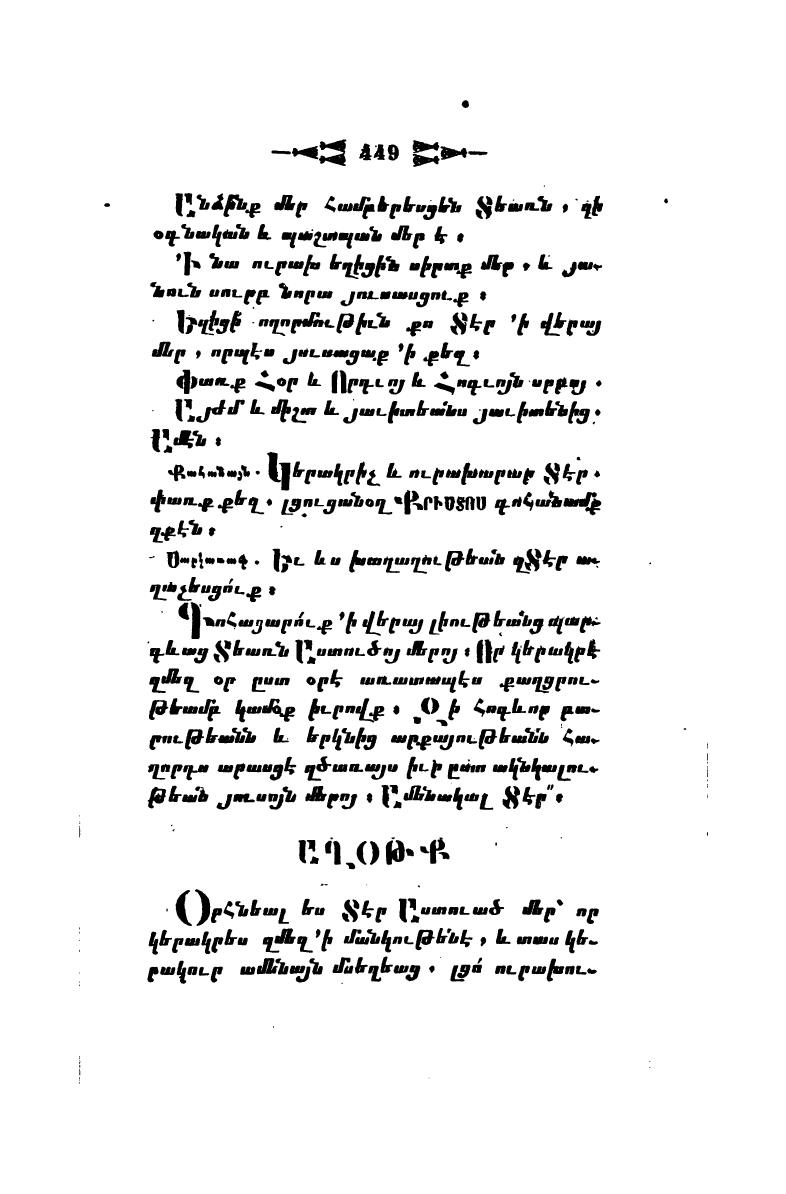 449
Անձինք մեր Համբերեսցեն Տեառն , զի
օգնական և պաշտպան մեր է ։
՚Ի նա ուրախ եղիցին սիրտք մեր , և յա֊
նուն սուրբ նորա յուսասցուք ։
Եղիցի ողորմութիւն քո Տէր ՚ի վերայ
մեր , որպէս յուսացաք ՚ի քեզ ։
Փառք Հօր և Որդւոյ և Հոգւոյն սրբոյ .
Այժմ և միշտ և յաւիտեանս յաւիտենից .
Ամէն ։
Քահանայն . Կերակրիչ և ուրախարար Տէր .
փառք քեզ . լցուցանօղ ՔՐԻՍՏՈՍ գոհանամք
զքէն ։
Սարկաւագ . Եւ ևս խաղաղութեան զՏէր ա֊
ղաչեսցուք ։
Գոհացարուք ՚ի վերայ լիութեանց պար֊
գևաց Տեառն Աստուծոյ մերոյ ։ Որ կերակրէ
զմեզ օր ըստ օրէ առատապէս քաղցրու֊
թեամբ կամօք իւրովք ։ Զի հոգևոր բա֊
րութեանն և երկնից արքայութեանն հա֊
ղորդս արասցէ զծառայս իւր ըստ ակնկալու֊
թեան յուսոյն մերոյ ։ Ամենակալ Տէր ։
ԱՂՕԹՔ
Օրհնեալ ես Տէր Աստուած մեր՝ որ
կերակրես զմեզ ՚ի մանկութենէ , և տաս կե֊
րակուր ամենայն մսեղեաց . լցո՛ ուրախու֊